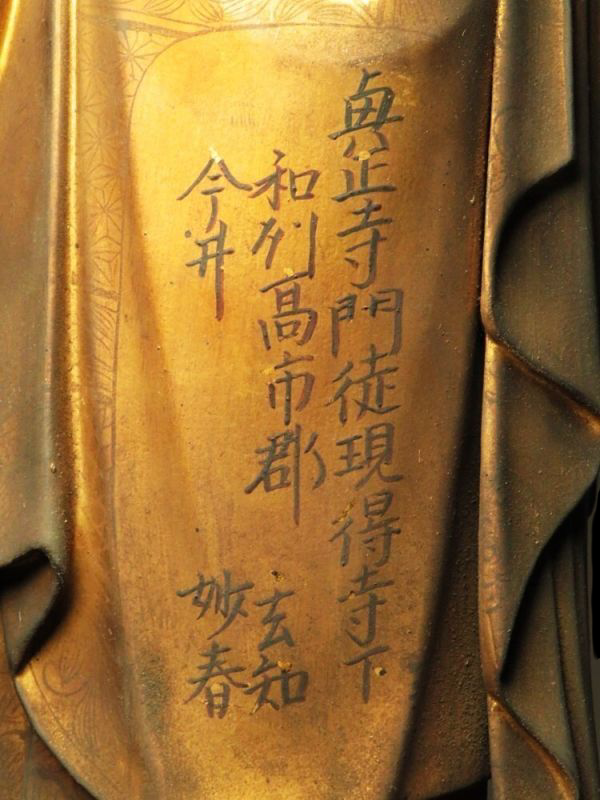 真正寺門徒現得寺下
和刕高市郡 玄知
今井 妙春